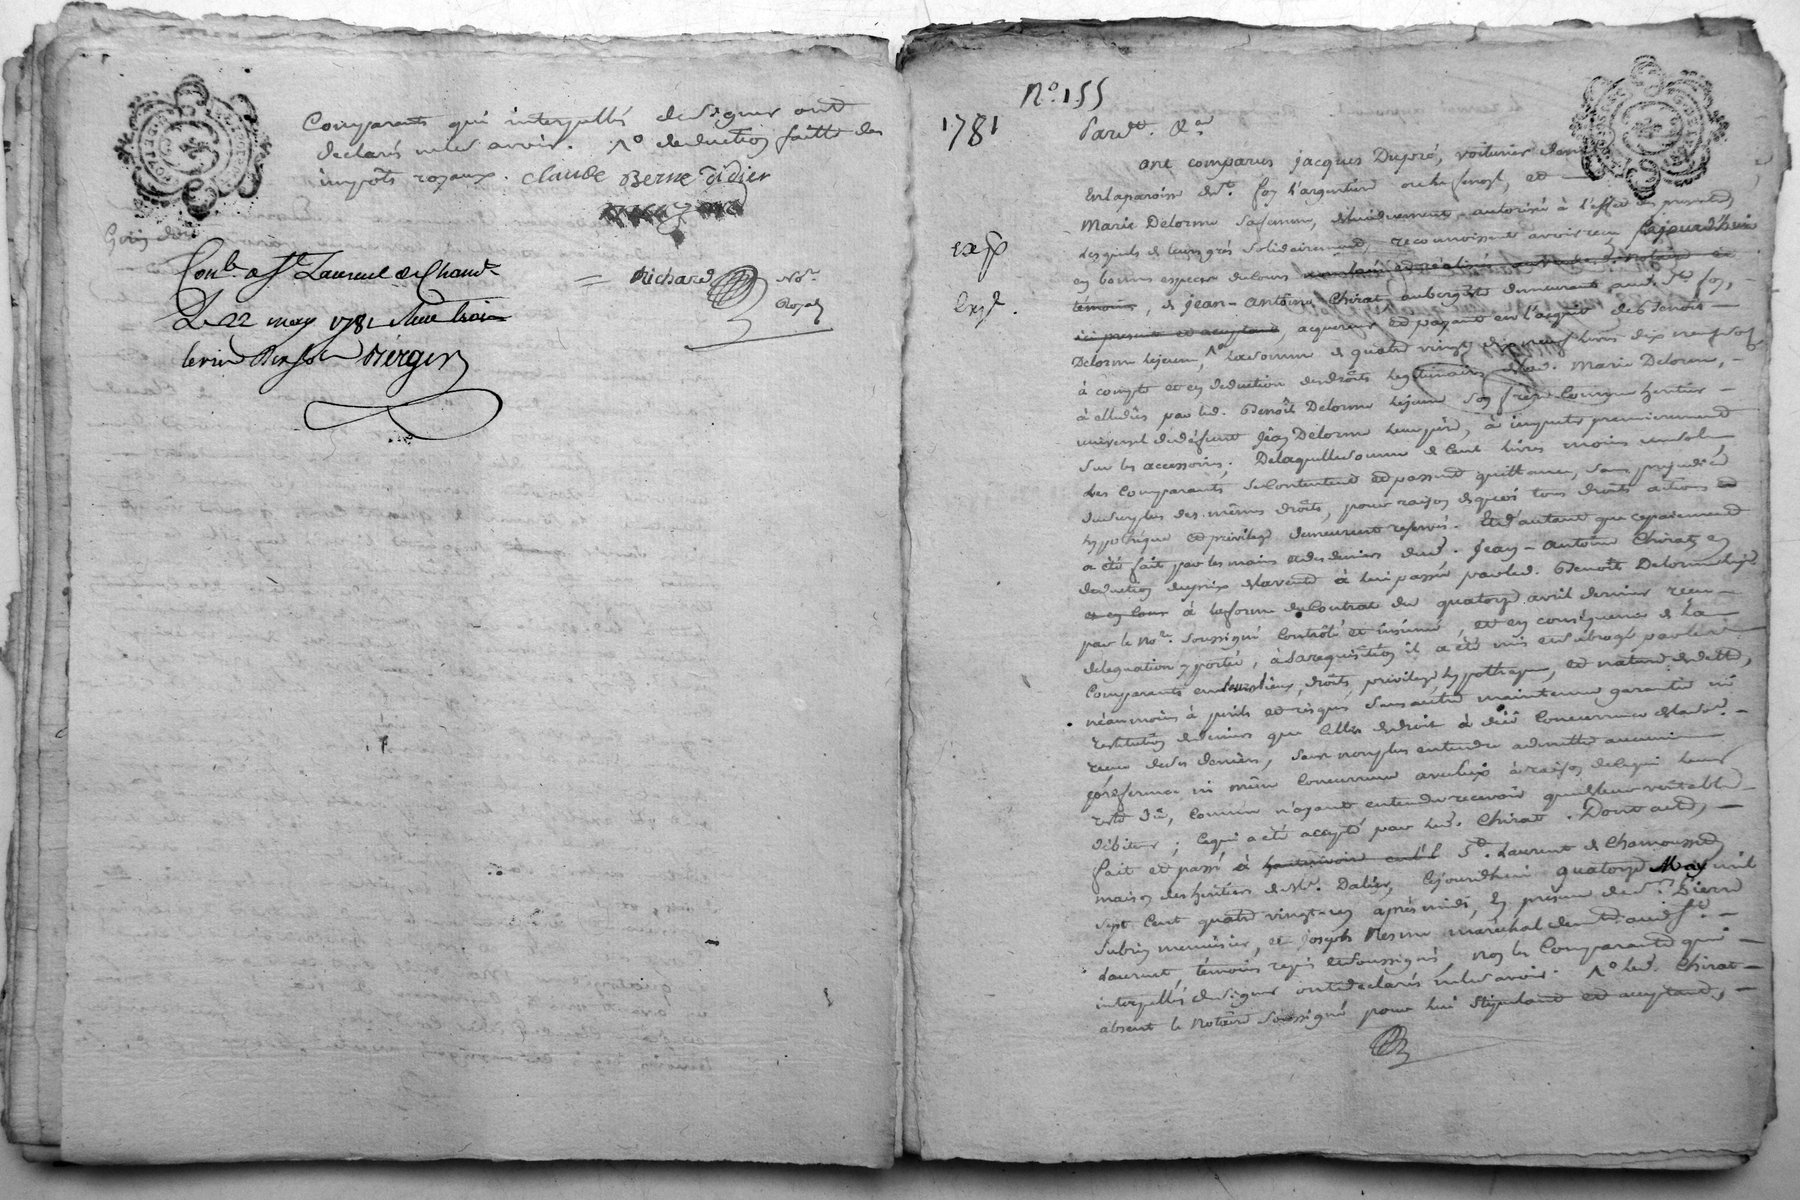 Comparants qui interpellés de signer ont
declarés ne le savoir. No deduction faitte des
impots royaux. Claude Berne Didier
Richard No.re
Royal
Con.lé a St. Laurent de Cham.
Le 22 may 1781
Berger
No. 155
1781
Pard.t
ont comparus Jacques Dupré, voiturier dem.t
en la paroisse de St. foy l'argentiere et
Marie Delorme sa femme, autorisé à l'effet des presentes
Lesquels de leurs grés solidairement, reconnoissent avoir reçu cejourd'hui
exp
en bonnes especes de cours
témoins, de jean-antoine Chirat aubergiste demeurant aud. St. foy,
ici present et acceptant, acquereur et payant en l'acquit de Benoit
Delorme lejeune, la somme de quatre vingt dix neuf livres dix neuf sols
à compte et en deduction des droits legitimaires de lad. Marie Delorme,
à elle dûs par led. Benoît Delorme lejeune son frère comme heritier
universel de défunt Jean Delorme leur père, à imputer premierement
sur les accessoires. De laquelle somme de cent livres moins un sol
Les comparants se contentent et passent quittance, sans prejudice
du surplus des mêmes droits, pour raison de quoi tous droits actions et
hypotheque et privilege demeurent reservés. Et d'autant que ce paiement
a été fait par les mains et des deniers dud. Jean-Antoine Chirat en
deduction du prix de la vente à lui passée par led. Benoît Delorme lejeune
à la forme du contrat du quatorze avril dernier reçu
par le No.re soussigné Controlé et insinué, et en conséquence de la
delegation y portée, à sa requisition il a été mis et subrogé par les
Comparants en leurs lieux, droits, privilege hypotheque, et nature de dette,
néanmoins à perils et risques sans autre maintenue garantie ni
restitution de deniers que celle de droit à dûë concurrence de la
reçue de ses deniers, sans non plus entendre admettre aucune
préférence ni même concurrence avec lui à raison de ce qui leur
reste dû, comme n'ayant entendu recevoir que de leur véritable
débiteur; ce qui a été accepté par led. Chirat. Dont acte,
fait et passé à St. Laurent de Chamousset
maison des heritiers de Mr. Dalier, cejourdhui quatorze May mil
sept cent quatre vingt un après midi, en presence de Sr. Pierre
Subrin menuisier, et Joseph Nesme maréchal dem.t aud. St.
Laurent, témoins requis et soussignés, non les Comparants qui
interpellés de signer ont declarés ne le savoir. No led. Chirat
absent le Notaire soussigné pour lui stipulant et acceptant,